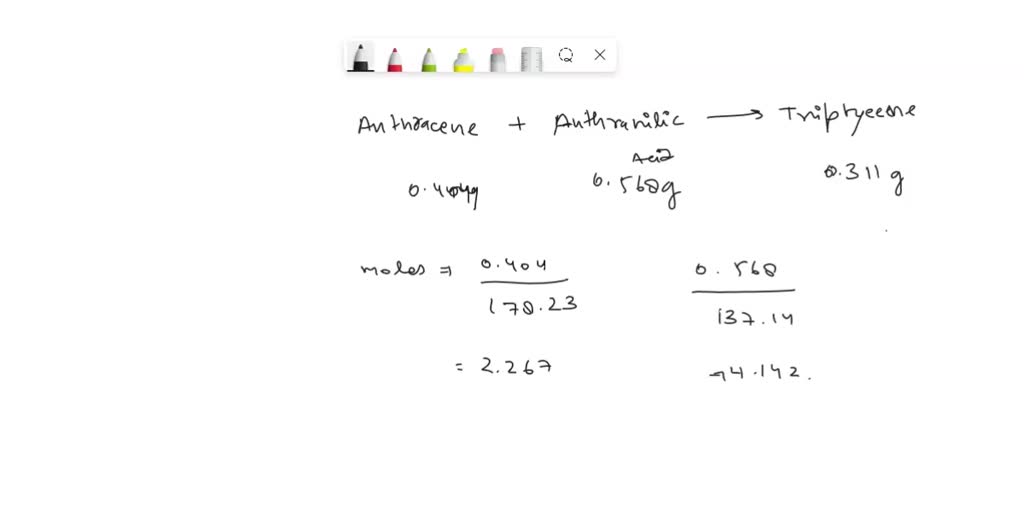 Anthracene + Anthranilic → Triptycene
Acid
0.404g 0.568g 0.311 g
moles ⇒ 0.404 0.568
178.23 137.14
= 2.267 → 4.142.